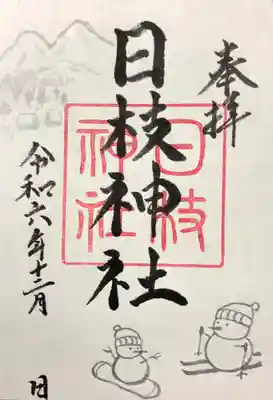 奉拝
日枝神社
日枝
神社
令和六年十二月
日